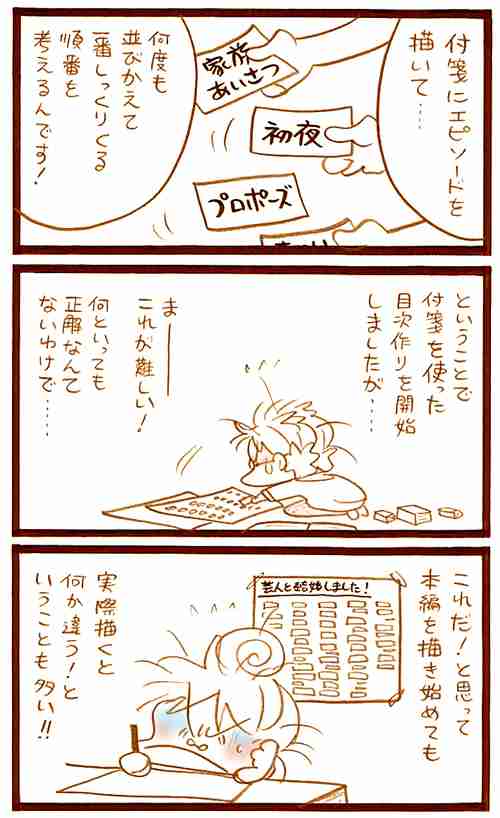 付箋にエピソードを
描いて……
家族
あいさつ
初夜
プロポーズ
何度も
並びかえて
一番しっくりくる
順番を
考えるんです!
ということで
付箋を使った
目次作りを開始
しましたが……
まーーー
これが難しい!
何といっても
正解なんて
ないわけで……
これだ!と思って
本編を描き始めても
芸人と婚始しました!
実際描くと
何か違う!と
いうことも多い!!